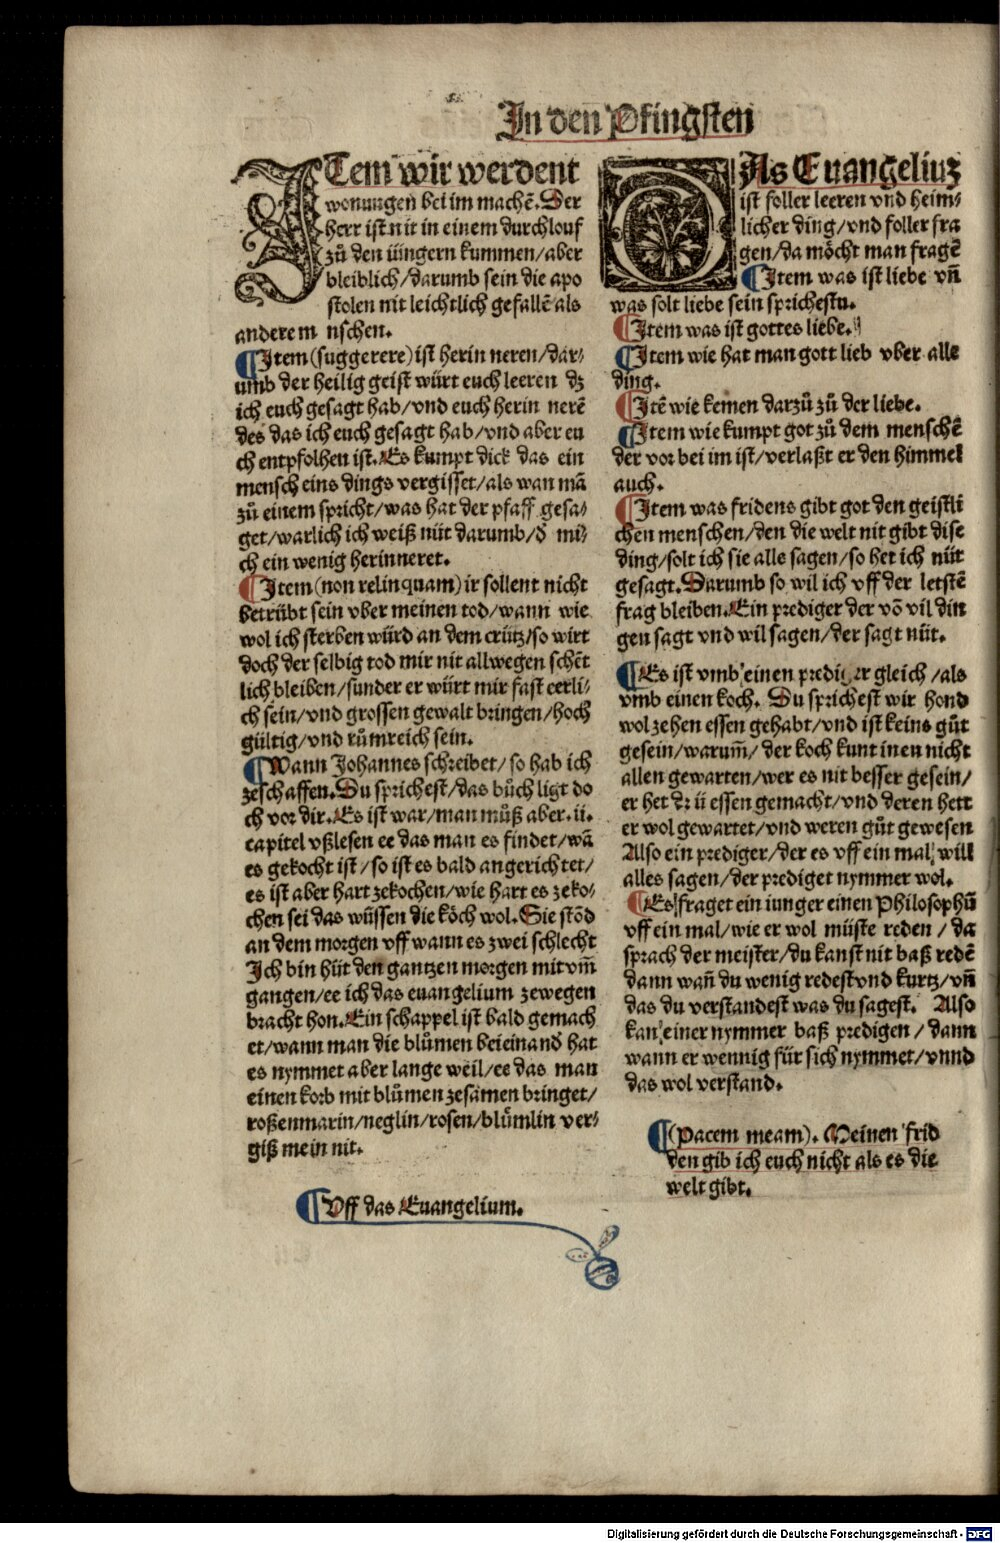 In den Pfingsten
ITem wir werdent
wonungen bei im machē. Der
herr ist nit in einem durchlouf
zů den iüngern kummen/aber
bleiblich/darumb sein die apo
stolen nit leichtlich gefallē als
andere m nschen.
¶Item (suggerere) ist herin neren/dar⸗
umb der heilig geist würt euch leeren dz
ich euch gesagt hab/vnd euch herin nerē
des das ich euch gesagt hab/vnd aber eu
ch entpfolhen ist. Es kumpt dick das ein
mensch eins dings vergisset/als wan mā
zů einem spricht/was hat der pfaff gesa⸗
get/warlich ich weiß nüt darumb/d̄ mi⸗
ch ein wenig herinneret.
¶Item (non relinquam) ir sollent nicht
betrübt sein vber meinen tod/wann wie
wol ich sterben würd an dem crütz/so wirt
doch der selbig tod mir nit allwegen schēt
lich bleiben/sunder er würt mir fast eerli⸗
ch sein/vnd grossen gewalt bringen/hoch
gültig/vnd růmreich sein.
¶Wann Johannes schreibet/so hab ich
zeschaffen. Du sprichest/das bůch ligt do
ch vor dir. Es ist war/man můß aber.ii.
capitel vßlesen ee das man es findet/wā
es gekocht ist/so ist es bald angerichtet/
es ist aber hart zekochen/wie hart es zeko⸗
chen sei das wüssen die köch wol. Sie stōd
an dem morgen vff wann es zwei schlecht
Ich bin hüt den gantzen morgen mit vm̄
gangen/ee ich das euangelium zewegen
bracht hon. Ein schappel ist bald gemach
et/wann man die blůmen beieinand hat
es nymmet aber lange weil/ee das man
einen korb mit blůmen zesāmen bringet/
roßenmarin/neglin/rosen/blůmlin ver⸗
giß mein nit.
¶Vff das Euangelium.
DAs Euangeliuz
ist foller leeren vnd heim⸗
licher ding/vnd foller fra
gen/da möcht man fragē
¶Item was ist liebe vn̄
was solt liebe sein sprichestu.
¶Item was ist gottes liebe.
¶Item wie hat man gott lieb vber alle
ding.
¶Itē wie kemen darzů zů der liebe.
¶Item wie kumpt got zů dem menschē
der vor bei im ist/verlaßt er den himmel
auch.
¶Item was fridens gibt got den geistli
chen menschen/den die welt nit gibt dise
ding/solt ich sie alle sagen/so het ich nüt
gesagt. Darumb so wil ich vff der letstē
frag bleiben. Ein prediger der vō vil din
gen sagt vnd wil sagen/der sagt nüt.
¶Es ist vmb einen prediger gleich/als
vmb einen koch. Du sprichest wir hond
wol zehen essen gehabt/vnd ist keins gůt
gesein/warum̄/der koch kunt inen nicht
allen gewarten/wer es nit besser gesein/
er het drü essen gemacht/vnd deren hett
er wol gewartet/vnd weren gůt gewesen
Also ein prediger/der es vff ein mal will
alles sagen/der prediget nymmer wol.
¶Es fraget ein iunger einen Philosophū
vff ein mal/wie er wol müste reden/da
sprach der meister/du kanst nit baß redē
dann wan̄ du wenig redest vnd kurtz/vn̄
das du verstandest was du sagest. Also
kan einer nymmer baß predigen/dann
wann er wennig für sich nymmet/vnnd
das wol verstand.
¶(Pacem meam). Meinen frid
den gib ich euch nicht als es die
welt gibt.
Digitalisierung gefördert durch die Deutsche Forschungsgemeinschaft - DFG